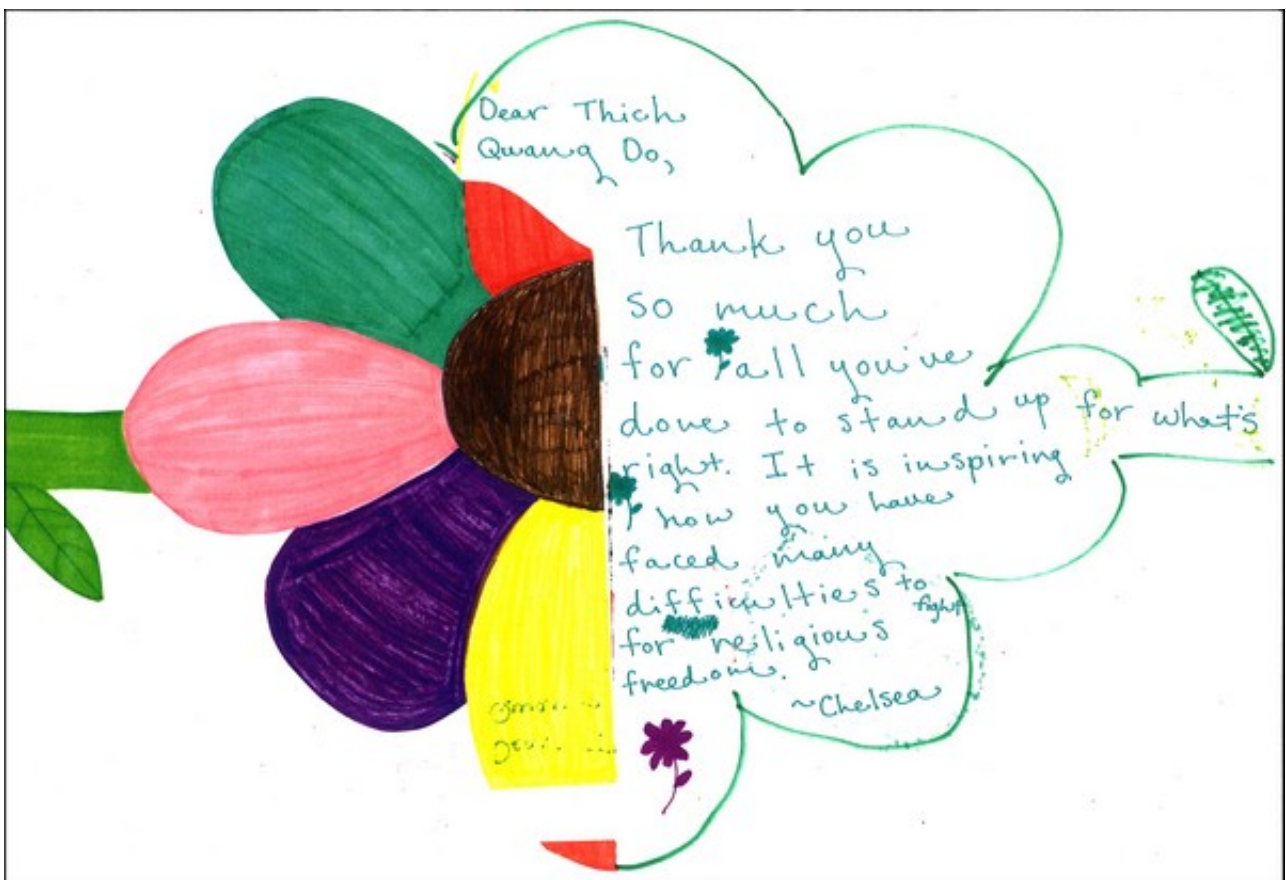 Dear Thich
Quang Do,
Thank you
so much
for all you've
done to stand up for what's
right. It is inspiring
how you have
faced many
difficulties to
fight
for religious
freedom.
~Chelsea